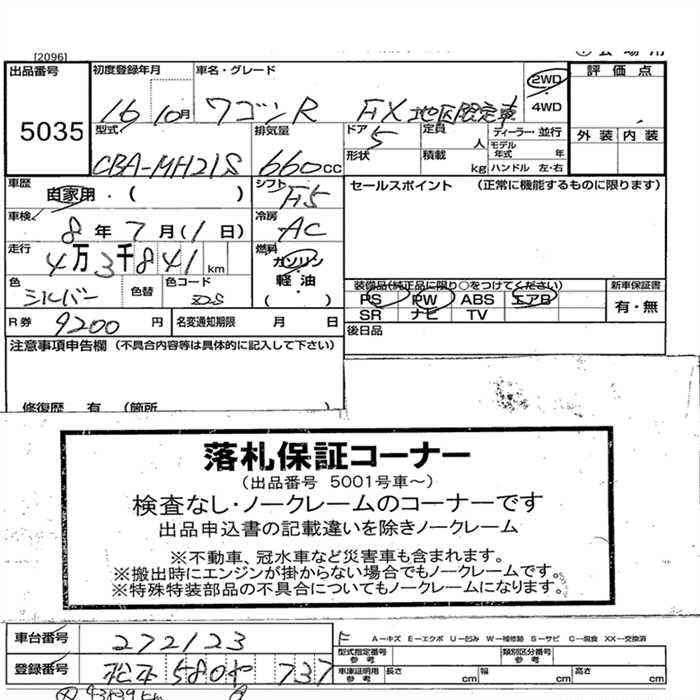 [2096]
出品番号 初度登録年月 車名・グレード 2WD 評価点
5035 16 10月 ワゴンR FX 地区限定車 4WD
型式 排気量 ドア 定員 ディーラー・並行 外装 内装
CBA-MH21S 660cc 5 人 モデル年式 年
形状 積載 kg ハンドル 左・右
車歴 自家用・( ) シフト F5 セールスポイント (正常に機能するものに限ります)
車検 8年 7月(1日) 冷房 AC
走行 4万3千841km 燃料 ガソリン
色 シルバー 色替 色コード 軽油・( )
装備品(純正品に限り○をつけてください) 新車保証書
PS PW ABS エアB 有・無
SR ナビ TV
R券 9200円 名変通知期限 月 日 後日品
注意事項申告欄 (不具合内容等は具体的に記入して下さい)
修復歴 有 (箇所
落札保証コーナー
(出品番号 5001号車~)
検査なし・ノークレームのコーナーです
出品申込書の記載違いを除きノークレーム
※不動車、冠水車など災害車も含まれます。
※搬出時にエンジンが掛からない場合でもノークレームです。
※特殊特装部品の不具合についてもノークレームになります。
車台番号 272123 F A―キズ E―エクボ U―凹み W―補修跡 S―サビ C―腐食 XX―交換済
型式指定番号 参考 類別区分番号 参考
登録番号 松本 580 や 737 車庫証明用 参考 長さ cm 幅 cm 高さ cm